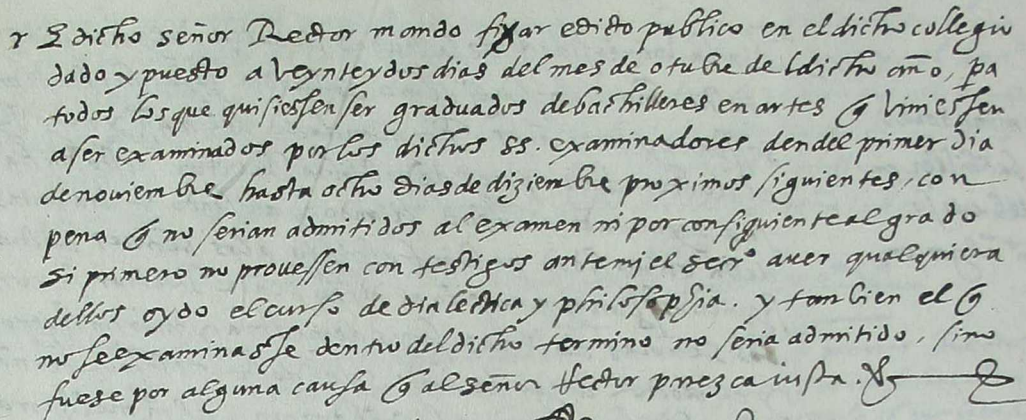 r El dicho señor Rector mando fixar edicto publico en el dicho collegio
dado y puesto a veynte y dos dias del mes de otubre del dicho año, pa
todos los que quisiessen ser graduados de bachilleres en artes q viniessen
a ser examinados por los dichos ss. examinadores dende l primer dia
de noviembre hasta ocho dias de diziembre proximos siguientes, con
pena q no serian admitidos al examen ni por consiguiente al grado
si primero no provessen con testigos ante mj el secrº aver qualquiera
dellos oydo el curso de dialectica y philosophia. y tambien el q
no se examinasse dentro del dicho termino no seria admitido, sino
fuese por alguna causa q al señor Rector parezca iusta.